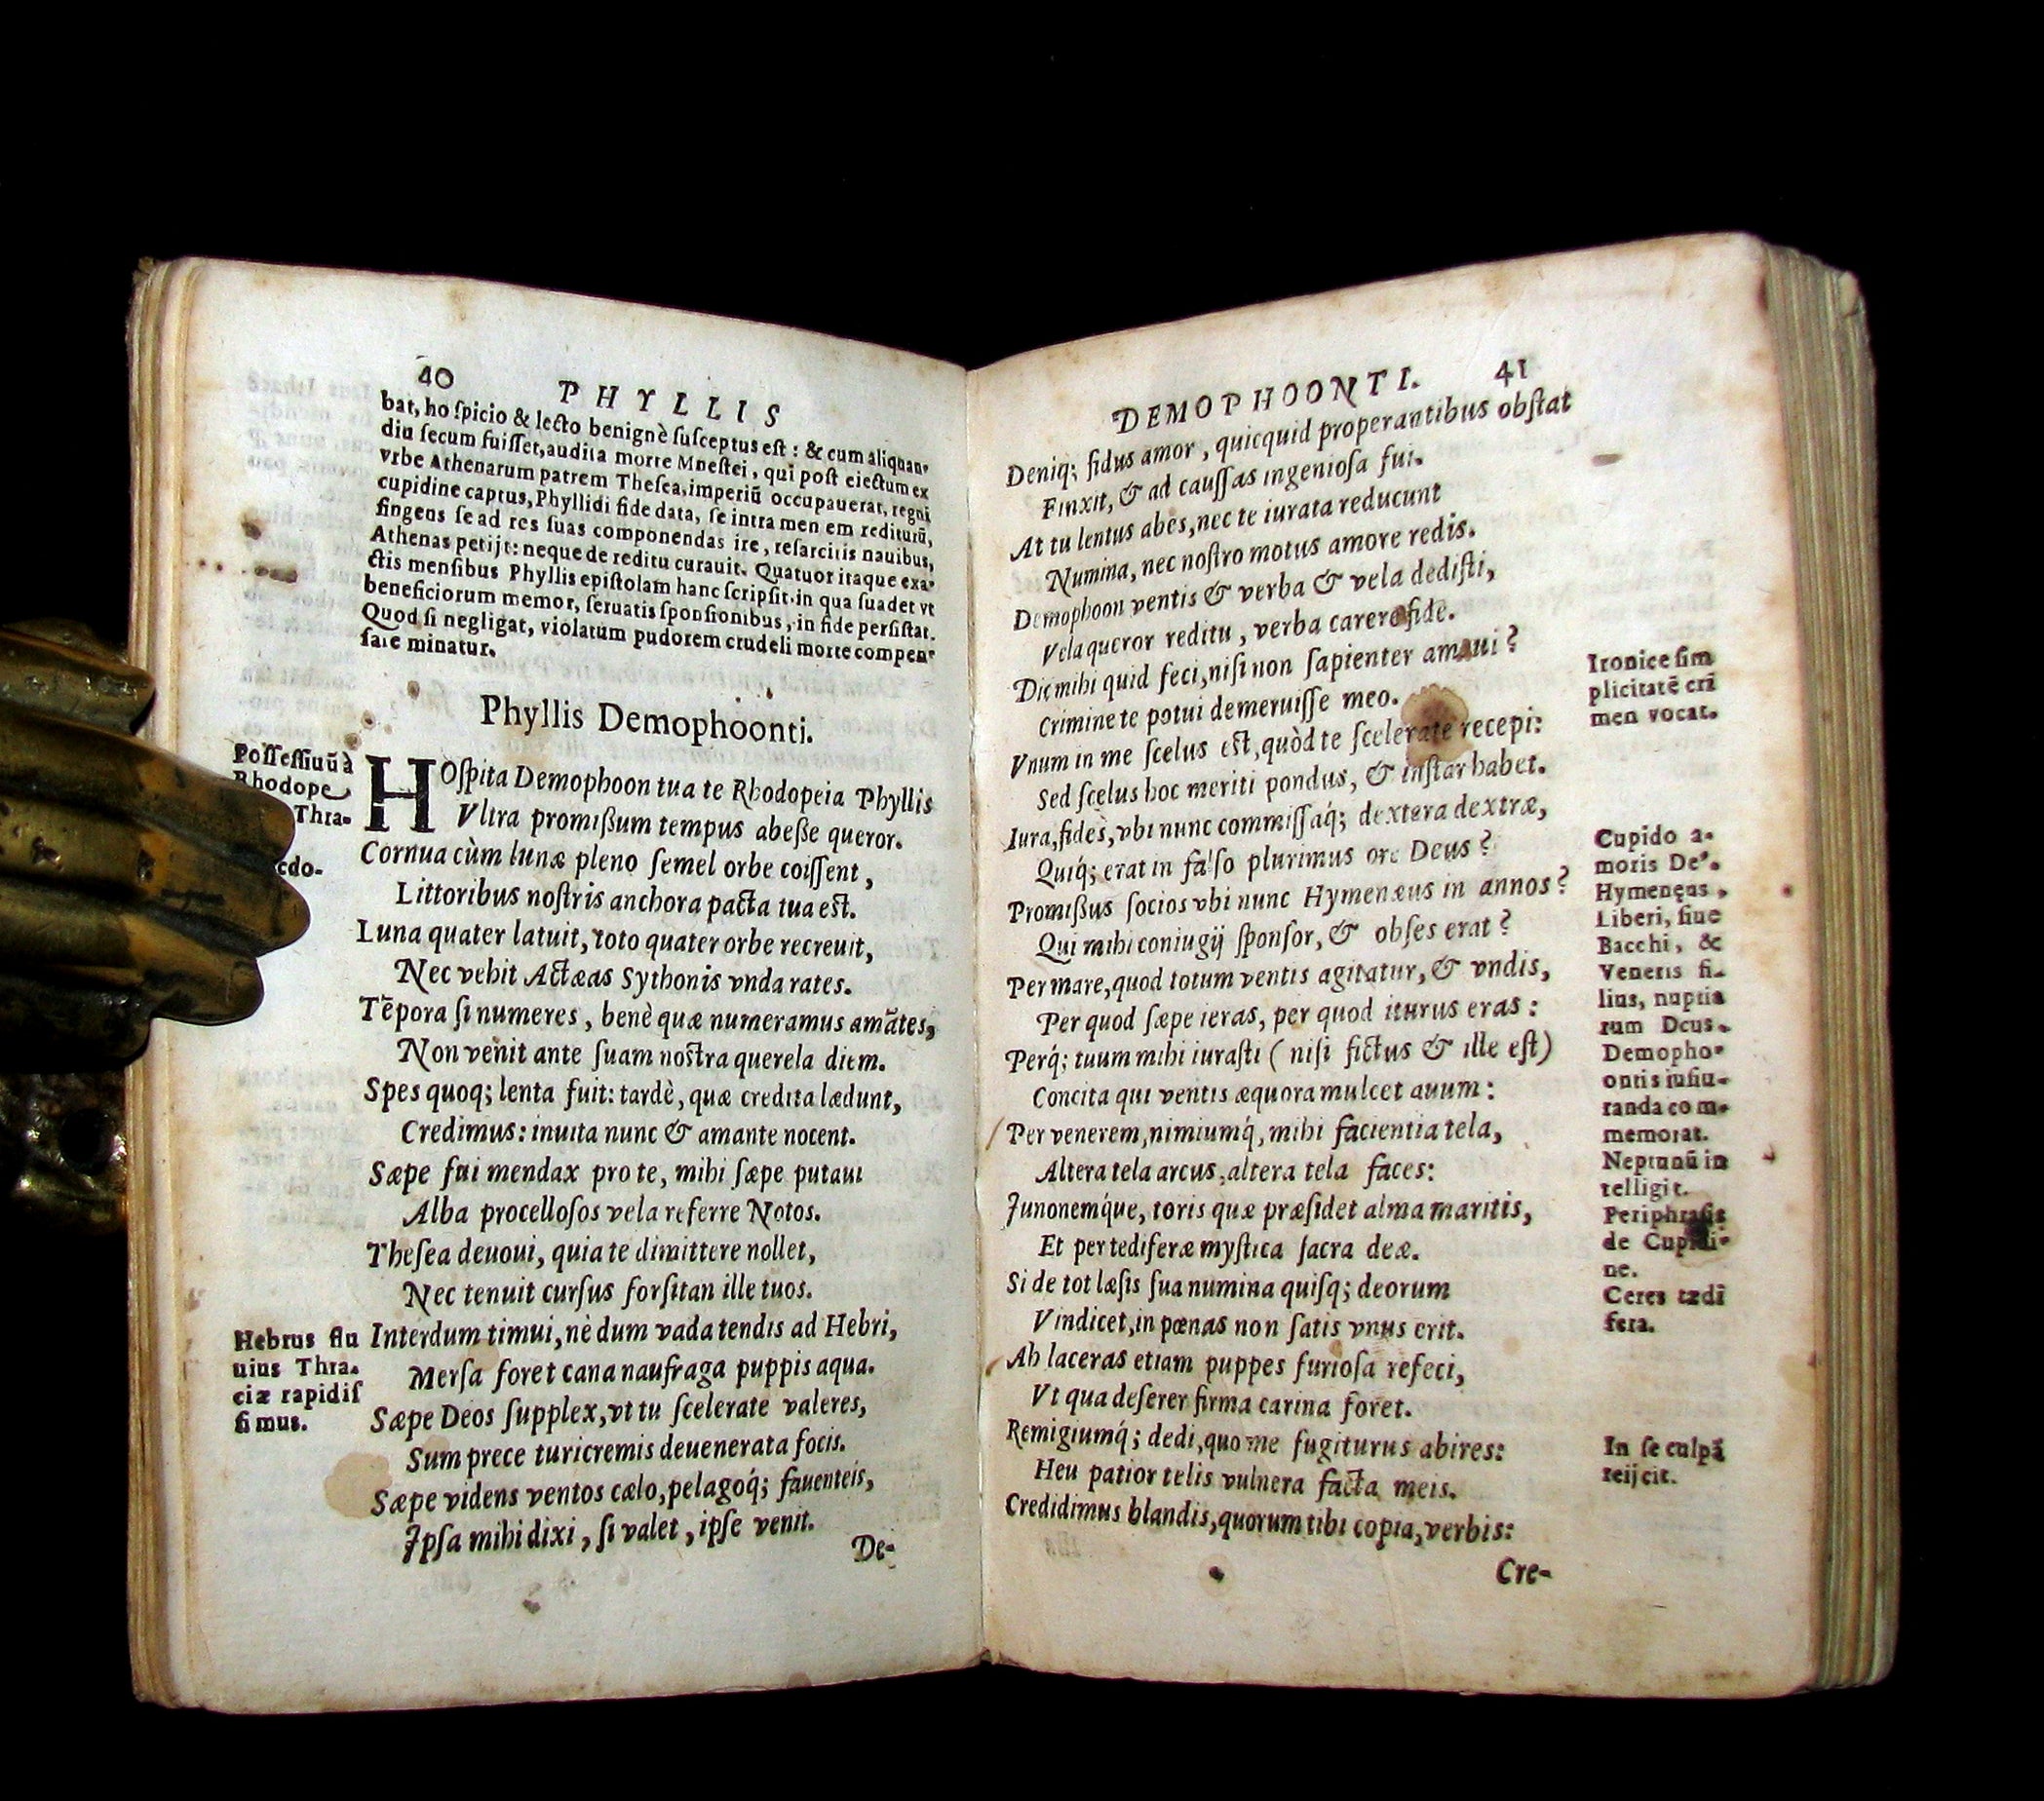 40
PHYLLIS
bat, hoſpicio & lecto benignè ſuſceptus eſt : & cum aliquan-
diu ſecum fuiſſet, audita morte Mneſtei, qui poſt eiectum ex
vrbe Athenarum patrem Theſea, imperiū occupauerat, regni
cupidine captus, Phyllidi fide data, ſe intra menſem rediturū,
fingens ſe ad res ſuas componendas ire, reſarcitis nauibus,
Athenas petijt: neque de reditu curauit. Quatuor itaque exa-
ctis menſibus Phyllis epiſtolam hanc ſcripſit, in qua ſuadet vt
beneficiorum memor, ſeruatis ſponſionibus, in fide perſiſtat.
Quod ſi negligat, violatum pudorem crudeli morte compen-
ſare minatur.
Phyllis Demophoonti.
Poſſeſſiuū à
Rhodope
Thra-
cdo-
HOſpita Demophoon tua te Rhodopeia Phyllis
Vltra promiſſum tempus abeſſe queror.
Cornua cùm lunæ pleno ſemel orbe coiſſent,
Littoribus noſtris anchora pacta tua eſt.
Luna quater latuit, toto quater orbe recreuit,
Nec vehit Actæas Sythonis vnda rates.
Tēpora ſi numeres, benè quæ numeramus amātes,
Non venit ante ſuam noſtra querela diem.
Spes quoq; lenta fuit: tardè, quæ credita lædunt,
Credimus: inuita nunc & amante nocent.
Sæpe fui mendax pro te, mihi ſæpe putaui
Alba procelloſos vela referre Notos.
Theſea deuoui, quia te dimittere nollet,
Nec tenuit curſus forſitan ille tuos.
Interdum timui, nè dum vada tendis ad Hebri,
Merſa foret cana naufraga puppis aqua.
Sæpe Deos ſupplex, vt tu ſcelerate valeres,
Sum prece turicremis deuenerata focis.
Sæpe videns ventos cælo, pelagoq́; fauenteis,
Ipſa mihi dixi, ſi valet, ipſe venit.
De-
Hebrus flu
uius Thra-
ciæ rapidiſ
ſimus.
DEMOPHOONTI. 41
Deniq; fidus amor, quicquid properantibus obſtat
Finxit, & ad cauſſas ingenioſa fui.
At tu lentus abes, nec te iurata reducunt
Numina, nec noſtro motus amore redis.
Demophoon ventis & verba & vela dediſti,
Vela queror reditu, verba carere fide.
Dic mihi quid feci, niſi non ſapienter amaui?
Crimine te potui demeruiſſe meo.
Vnum in me ſcelus eſt, quòd te ſcelerate recepi:
Sed ſcelus hoc meriti pondus, & inſtar habet.
Iura, fides, vbi nunc commiſſaq́; dextera dextræ,
Quiq́; erat in falſo plurimus ore Deus?
Promiſſus ſocios vbi nunc Hymenæus in annos?
Qui mihi coniugij ſponſor, & obſes erat?
Per mare, quod totum ventis agitatur, & vndis,
Per quod ſæpe ieras, per quod iturus eras:
Perq́; tuum mihi iuraſti (niſi fictus & ille eſt)
Concita qui ventis æquora mulcet auum:
Per venerem, nimiumq́, mihi facientia tela,
Altera tela arcus, altera tela faces:
Junonemq́ue, toris quæ præſidet alma maritis,
Et per tediferæ myſtica ſacra deæ.
Si de tot læſis ſua numina quiſq; deorum
Vindicet, in pœnas non ſatis vnus erit.
Ah laceras etiam puppes furioſa refeci,
Vt qua deſerer firma carina foret.
Remigiumq́; dedi, quo me fugiturus abires:
Heu patior telis vulnera facta meis.
Credidimus blandis, quorum tibi copia, verbis:
Cre-
Ironice ſim
plicitatē cri
men vocat.
Cupido a-
moris De°.
Hymenęus,
Liberi, ſiue
Bacchi, &
Veneris fi-
lius, nuptia
rum Deus.
Demopho-
ontis iuſiu-
randa com-
memorat.
Neptunū in
telligit.
Periphraſis
de Cupidi-
ne.
Ceres tædi
fera.
In ſe culpā
reijcit.